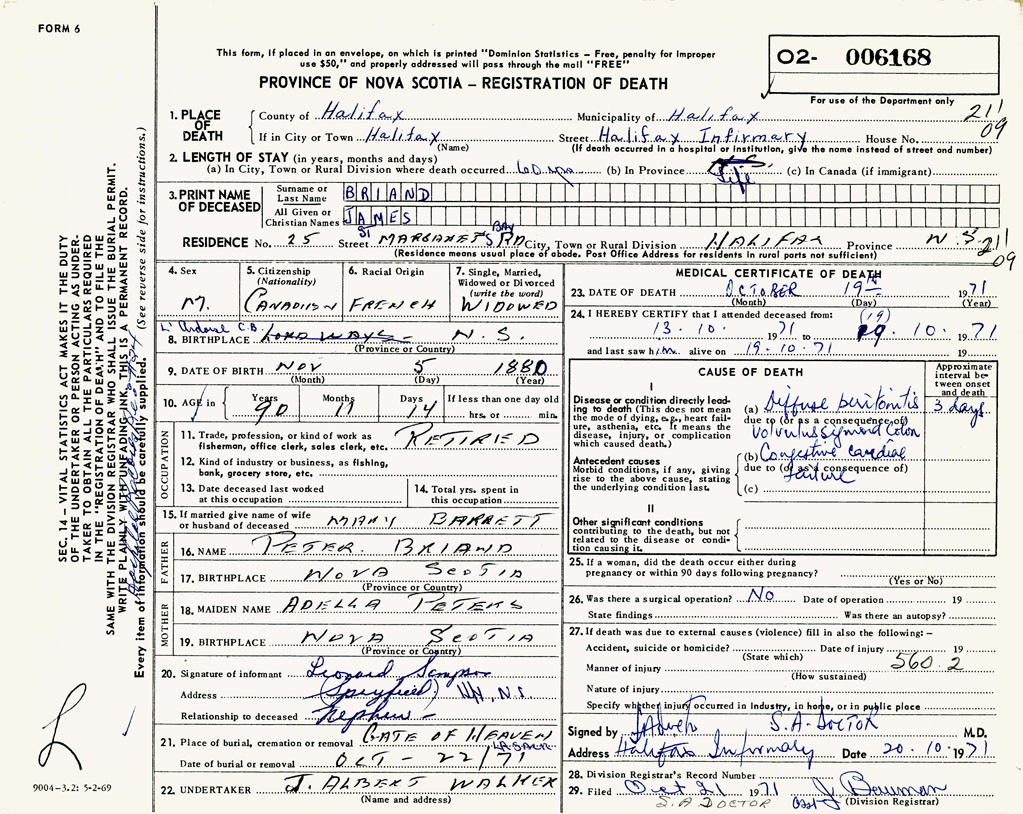 FORM 6
This form, if placed in an envelope, on which is printed "Dominion Statistics – Free, penalty for improper
use $50," and properly addressed will pass through the mail "FREE"
O2- 006168
PROVINCE OF NOVA SCOTIA – REGISTRATION OF DEATH
For use of the Department only
1. PLACE OF DEATH
County of Halifax Municipality of Halifax 211
If in City or Town Halifax Street Halifax Infirmary House No. 09
(Name) (If death occurred in a hospital or institution, give the name instead of street and number)
2. LENGTH OF STAY (in years, months and days)
(a) In City, Town or Rural Division where death occurred 60 (b) In Province Life (c) In Canada (if immigrant)
3. PRINT NAME OF DECEASED
Surname or Last Name BRIAND
All Given or Christian Names JAMES
RESIDENCE No. 25 Street ST MARGARET'S BAY RD City, Town or Rural Division HALIFAX Province N.S. 211
(Residence means usual place of abode. Post Office Address for residents in rural parts not sufficient) 09
4. Sex M.
5. Citizenship (Nationality) CANADIAN
6. Racial Origin FRENCH
7. Single, Married, Widowed or Divorced (write the word) WIDOWED
L'Ardoise C.B.
8. BIRTHPLACE N.S.
(Province or Country)
9. DATE OF BIRTH NOV 5 1880
(Month) (Day) (Year)
10. AGE in Years 90 Months 11 Days 14 If less than one day old
hrs. or min.
OCCUPATION
11. Trade, profession, or kind of work as
fisherman, office clerk, sales clerk, etc. RETIRED
12. Kind of industry or business, as fishing,
bank, grocery store, etc.
13. Date deceased last worked
at this occupation
14. Total yrs. spent in
this occupation
15. If married give name of wife
or husband of deceased MARY BARRETT
FATHER
16. NAME PETER BRIAND
17. BIRTHPLACE NOVA SCOTIA
(Province or Country)
MOTHER
18. MAIDEN NAME ADELLA PETERS
19. BIRTHPLACE NOVA SCOTIA
(Province or Country)
20. Signature of informant Leonard Sampson
Address (Spryfield) N.S.
Relationship to deceased Nephew –
21. Place of burial, cremation or removal GATE OF HEAVEN
Date of burial or removal OCT – 22/71
22. UNDERTAKER J. ALBERT WALKER
(Name and address)
MEDICAL CERTIFICATE OF DEATH
23. DATE OF DEATH OCTOBER 19TH 1971
(Month) (Day) (Year)
24. I HEREBY CERTIFY that I attended deceased from: (19)
13.10. 1971 to 19.10. 1971
and last saw him alive on 19.10.71 19
CAUSE OF DEATH
Approximate interval between onset and death
I
Disease or condition directly leading to death (This does not
mean the mode of dying, e.g., heart failure,
asthenia, etc. It means the
disease, injury, or complication
which caused death.)
(a) Diffuse peritonitis 3 days
due to (or as a consequence of)
volvulus sigmoid colon
Antecedent causes
Morbid conditions, if any, giving
rise to the above cause, stating
the underlying condition last.
(b) Congestive cardiac
due to (or as a consequence of)
failure
(c)
II
Other significant conditions
contributing to the death, but not
related to the disease or condition
causing it.
25. If a woman, did the death occur either during
pregnancy or within 90 days following pregnancy?
(Yes or No)
26. Was there a surgical operation? No Date of operation 19
State findings Was there an autopsy?
27. If death was due to external causes (violence) fill in also the following: –
Accident, suicide or homicide? Date of injury 19
(State which) 560.2
Manner of injury
(How sustained)
Nature of injury
Specify whether injury occurred in Industry, in home, or in public place
Signed by S.A. DOCTOR M.D.
Address Halifax Infirmary Date 20.10.1971
28. Division Registrar's Record Number
29. Filed Oct 21 1971 J. Bauman
S.A DOCTOR (Division Registrar)
SEC. 14 – VITAL STATISTICS ACT MAKES IT THE DUTY
OF THE UNDERTAKER OR PERSON ACTING AS UNDER-
TAKER TO OBTAIN ALL THE PARTICULARS REQUIRED
IN THE "REGISTRATION OF DEATH" AND TO FILE THE
SAME WITH THE DIVISION REGISTRAR WHO SHALL ISSUE THE BURIAL PERMIT.
WRITE PLAINLY WITH UNFADING INK, THIS IS A PERMANENT RECORD.
Every item of information should be carefully supplied. (See reverse side for instructions.)
9004-3.2: 5-2-69